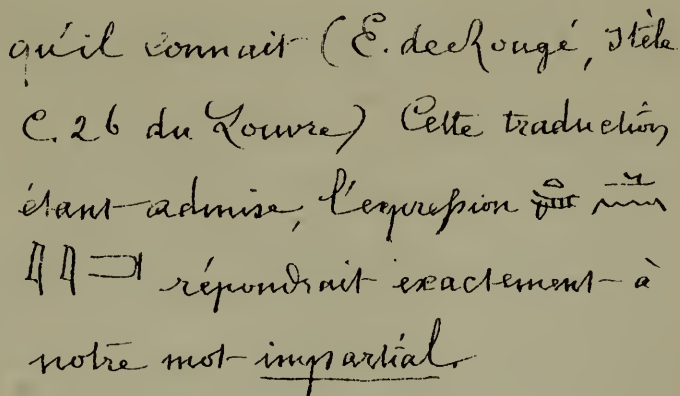 qu'il connait (E. de Rougé, Stèle
C. 26 du Louvre) Cette traduction
étant admise, l'expression
répondrait exactement à
notre mot impartial.